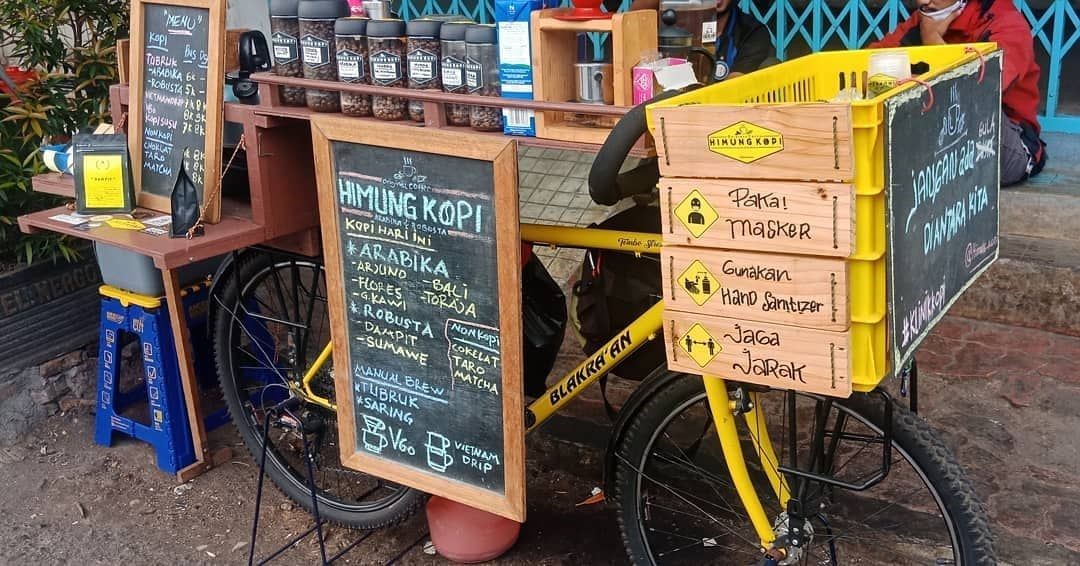 "MENU"
KOPI
TUBRUK
-ARABIKA
-ROBUSTA
VIETNAMDRIP
KOPI SUSU
NONKOPI
CHOKLAT
TARO
MATCHA
HIMUNG KOPI
ARABIKA & ROBUSTA
KOPI HARI INI
*ARABIKA
-ARJUNO
-BALI
-FLORES
-TORAJA
-G.KAWI
*ROBUSTA
-DAMPIT
-SUMAWE
NONKOPI
COKELAT
TARO
MATCHA
MANUAL BREW
*TUBRUK
*SARING
V60
VIETNAM
DRIP
BLAKRA'AN
HIMUNG KOPI
PAKAI
MASKER
GUNAKAN
HAND SANITIZER
JAGA
JARAK
JANGAN ADA
GULA
DIANTARA KITA
#KLINIKKOPI